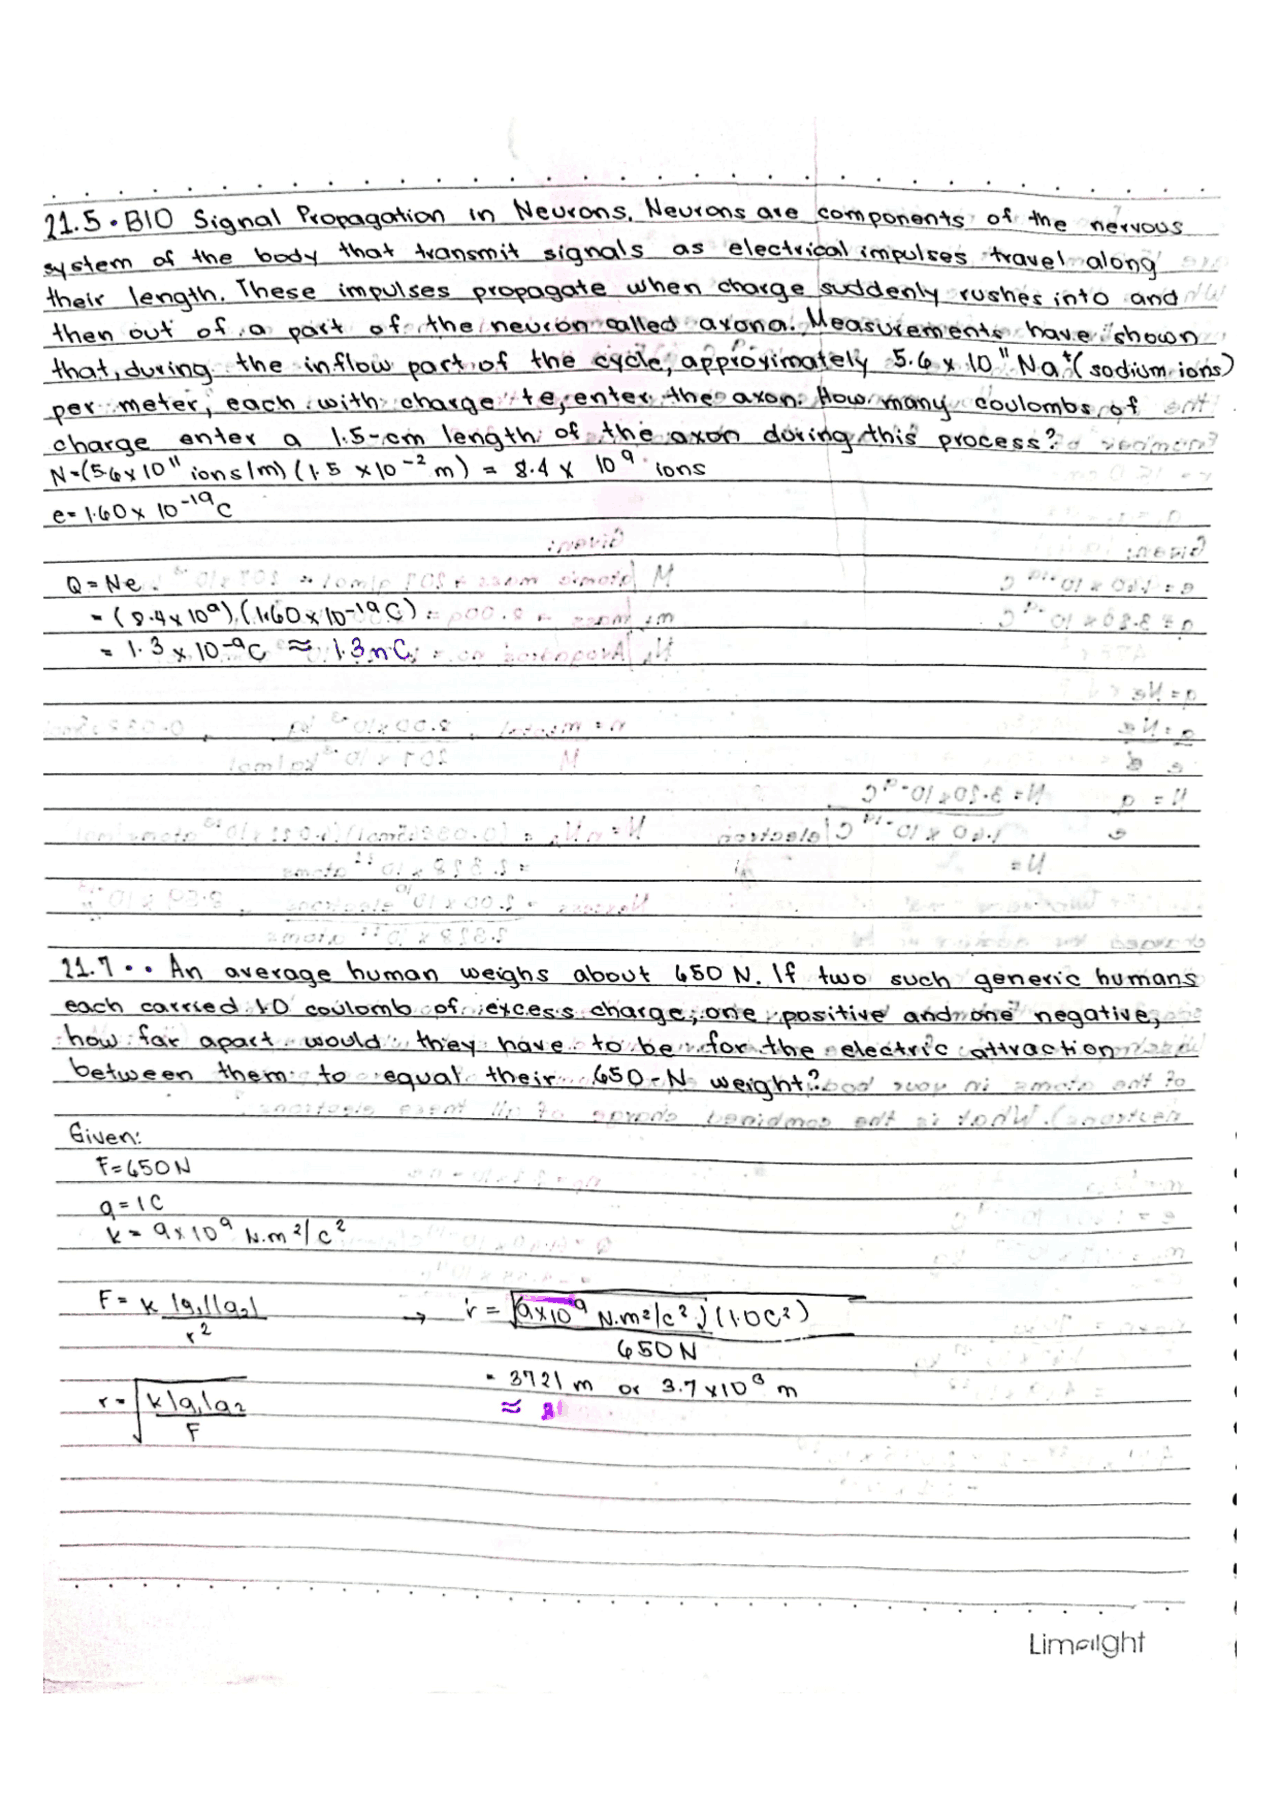 21.5 • BIO Signal Propagation in Neurons. Neurons are components of the nervous
system of the body that transmit signals as electrical impulses travel along
their length. These impulses propagate when charge suddenly rushes into and
then out of a part of the neuron called axona. Measurements have shown
that, during the inflow part of the cycle, approximately 5.6 x 10¹¹ Na⁺ (sodium ions)
per meter, each with charge +e, enter the axon. How many coulombs of
charge enter a 1.5-cm length of the axon during this process?
N=(5.6x10¹¹ ions/m)(1.5 x10⁻² m) = 8.4 x 10⁹ ions
e= 1.60 x 10⁻¹⁹ C
Q = Ne
= (8.4x10⁹)(1.60x10⁻¹⁹C)
= 1.3 x 10⁻⁹C ≈ 1.3nC
21.7 •• An average human weighs about 650 N. If two such generic humans
each carried 1.0 coulomb of excess charge, one positive and one negative,
how far apart would they have to be for the electric attraction
between them to equal their 650-N weight?
Given:
F=650N
q=1C
k = 9x10⁹ N.m²/c²
F= k |q₁||q₂| / r² → r = √(9x10⁹ N.m²/c²)(1.0C²) / 650N
= 3721 m or 3.7x10³ m
r = √k|q₁|q₂ / F
≈
Limelight